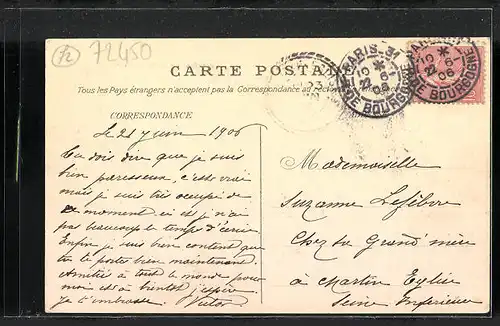 72 72450
CARTE POSTALE
Tous les Pays étrangers n'acceptent pas la Correspondance au recto
CORRESPONDANCE
Le 21 juin 1906
Tu dois dire que je suis
bien paresseux, c'est vrai
mais je suis très occupé en
ce moment, ici et je n'ai
pas beaucoup le temps d'écrire
Enfin je suis bien content que
tu te portes bien maintenant.
Amitié à tout le monde pour
moi et à bientôt j'espère
Je t'embrasse. Victor
PARIS-31
R. DE BOURGOGNE
PARIS-31
R. DE BOURGOGNE
Mademoiselle
Suzanne Lefèbvre
Chez sa Grand'mère
à Martin Eglise
Seine Inférieure